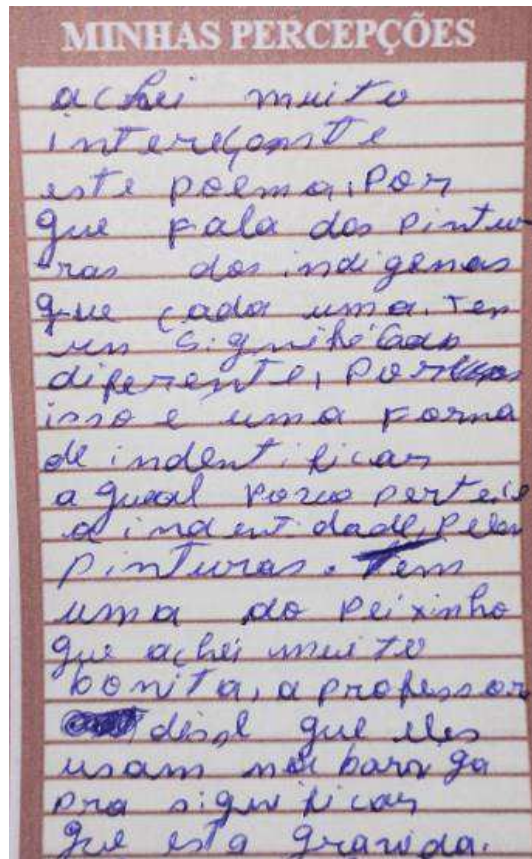 MINHAS PERCEPÇÕES
achei muito
intereçante
este poema, Por
que fala das pintu
ras dos indigenas
que cada uma. tem
um significado
diferente, Por
isso e uma forma
de indentificar
a qual povo pertence
a indentidade, pelas
pinturas. Tem
uma do peixinho
que achei muito
bonita, a professor
disse que eles
usam na barriga
pra significar
que esta gravida.